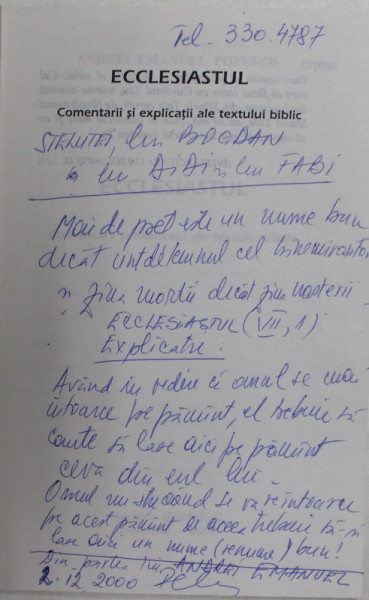 Tel. 330.4787
ECCLESIASTUL
Comentarii și explicații ale textului biblic
STELUȚEI, lui BOGDAN
lui DIDI și lui FABI
Mai de preț este un nume bun
decât untdelemnul cel binemirositor
și ziua morții decât ziua nașterii
ECCLESIASTUL (VII, 1)
Explicație.
Având în vedere că omul se mai
întoarce pe pământ, el trebuie să
caute să lase aici pe pământ
ceva din eul lui.
Omul nu știe când se va reîntoarce
pe acest pământ de aceea trebuie să-și
lase aici un nume (renume) bun!
Din partea lui ANDREI EMANUEL
2.12.2000